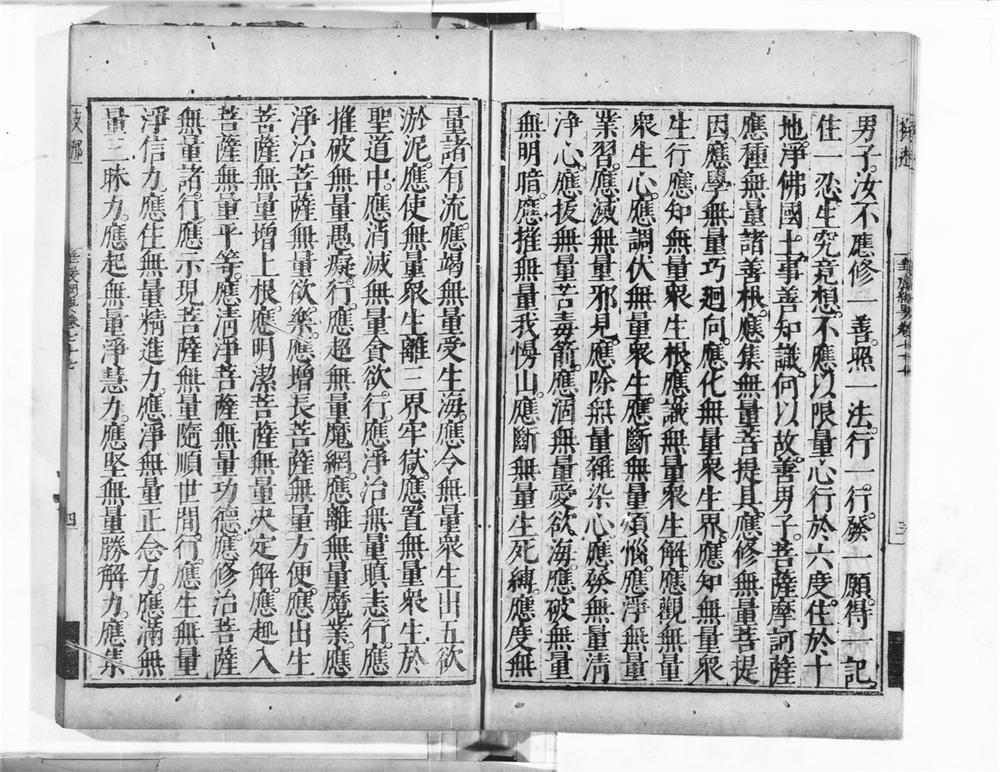 男子。汝不應修一善。照一法。行一行。發一願。得一記。
住一忍。生究竟想。不應以限量心行於六度。住於十
地。淨佛國土。事善知識。何以故。善男子。菩薩摩訶薩
應種無量諸善根。應集無量菩提具。應修無量菩提
因。應學無量巧廻向。應化無量衆生界。應知無量衆
生行。應知無量衆生根。應識無量衆生解。應觀無量
衆生心。應調伏無量衆生。應斷無量煩惱。應淨無量
業習。應滅無量邪見。應除無量雜染心。應發無量清
淨心。應拔無量苦毒箭。應涸無量愛欲海。應破無量
無明暗。應摧無量我慢山。應斷無量生死縛。應度無
量諸有流。應竭無量受生海。應令無量衆生出五欲
淤泥。應使無量衆生離三界牢獄。應置無量衆生於
聖道中。應消滅無量貪欲。行應淨治無量瞋恚行。應
摧破無量愚癡。行。應超無量魔網。應離無量魔業。應
淨治菩薩無量欲樂。應增長菩薩無量方便。應出生
菩薩無量增上根。應明潔菩薩無量决定解。應趣入
菩薩無量平等。應清淨菩薩無量功德。應修治菩薩
無量諸。行。應示現菩薩無量隨順世間。行。應生無量
淨信力。應住無量精進力。應淨無量正念力。應滿無
量三昧力。應起無量淨慧力。應堅無量勝解力。應集
三
四